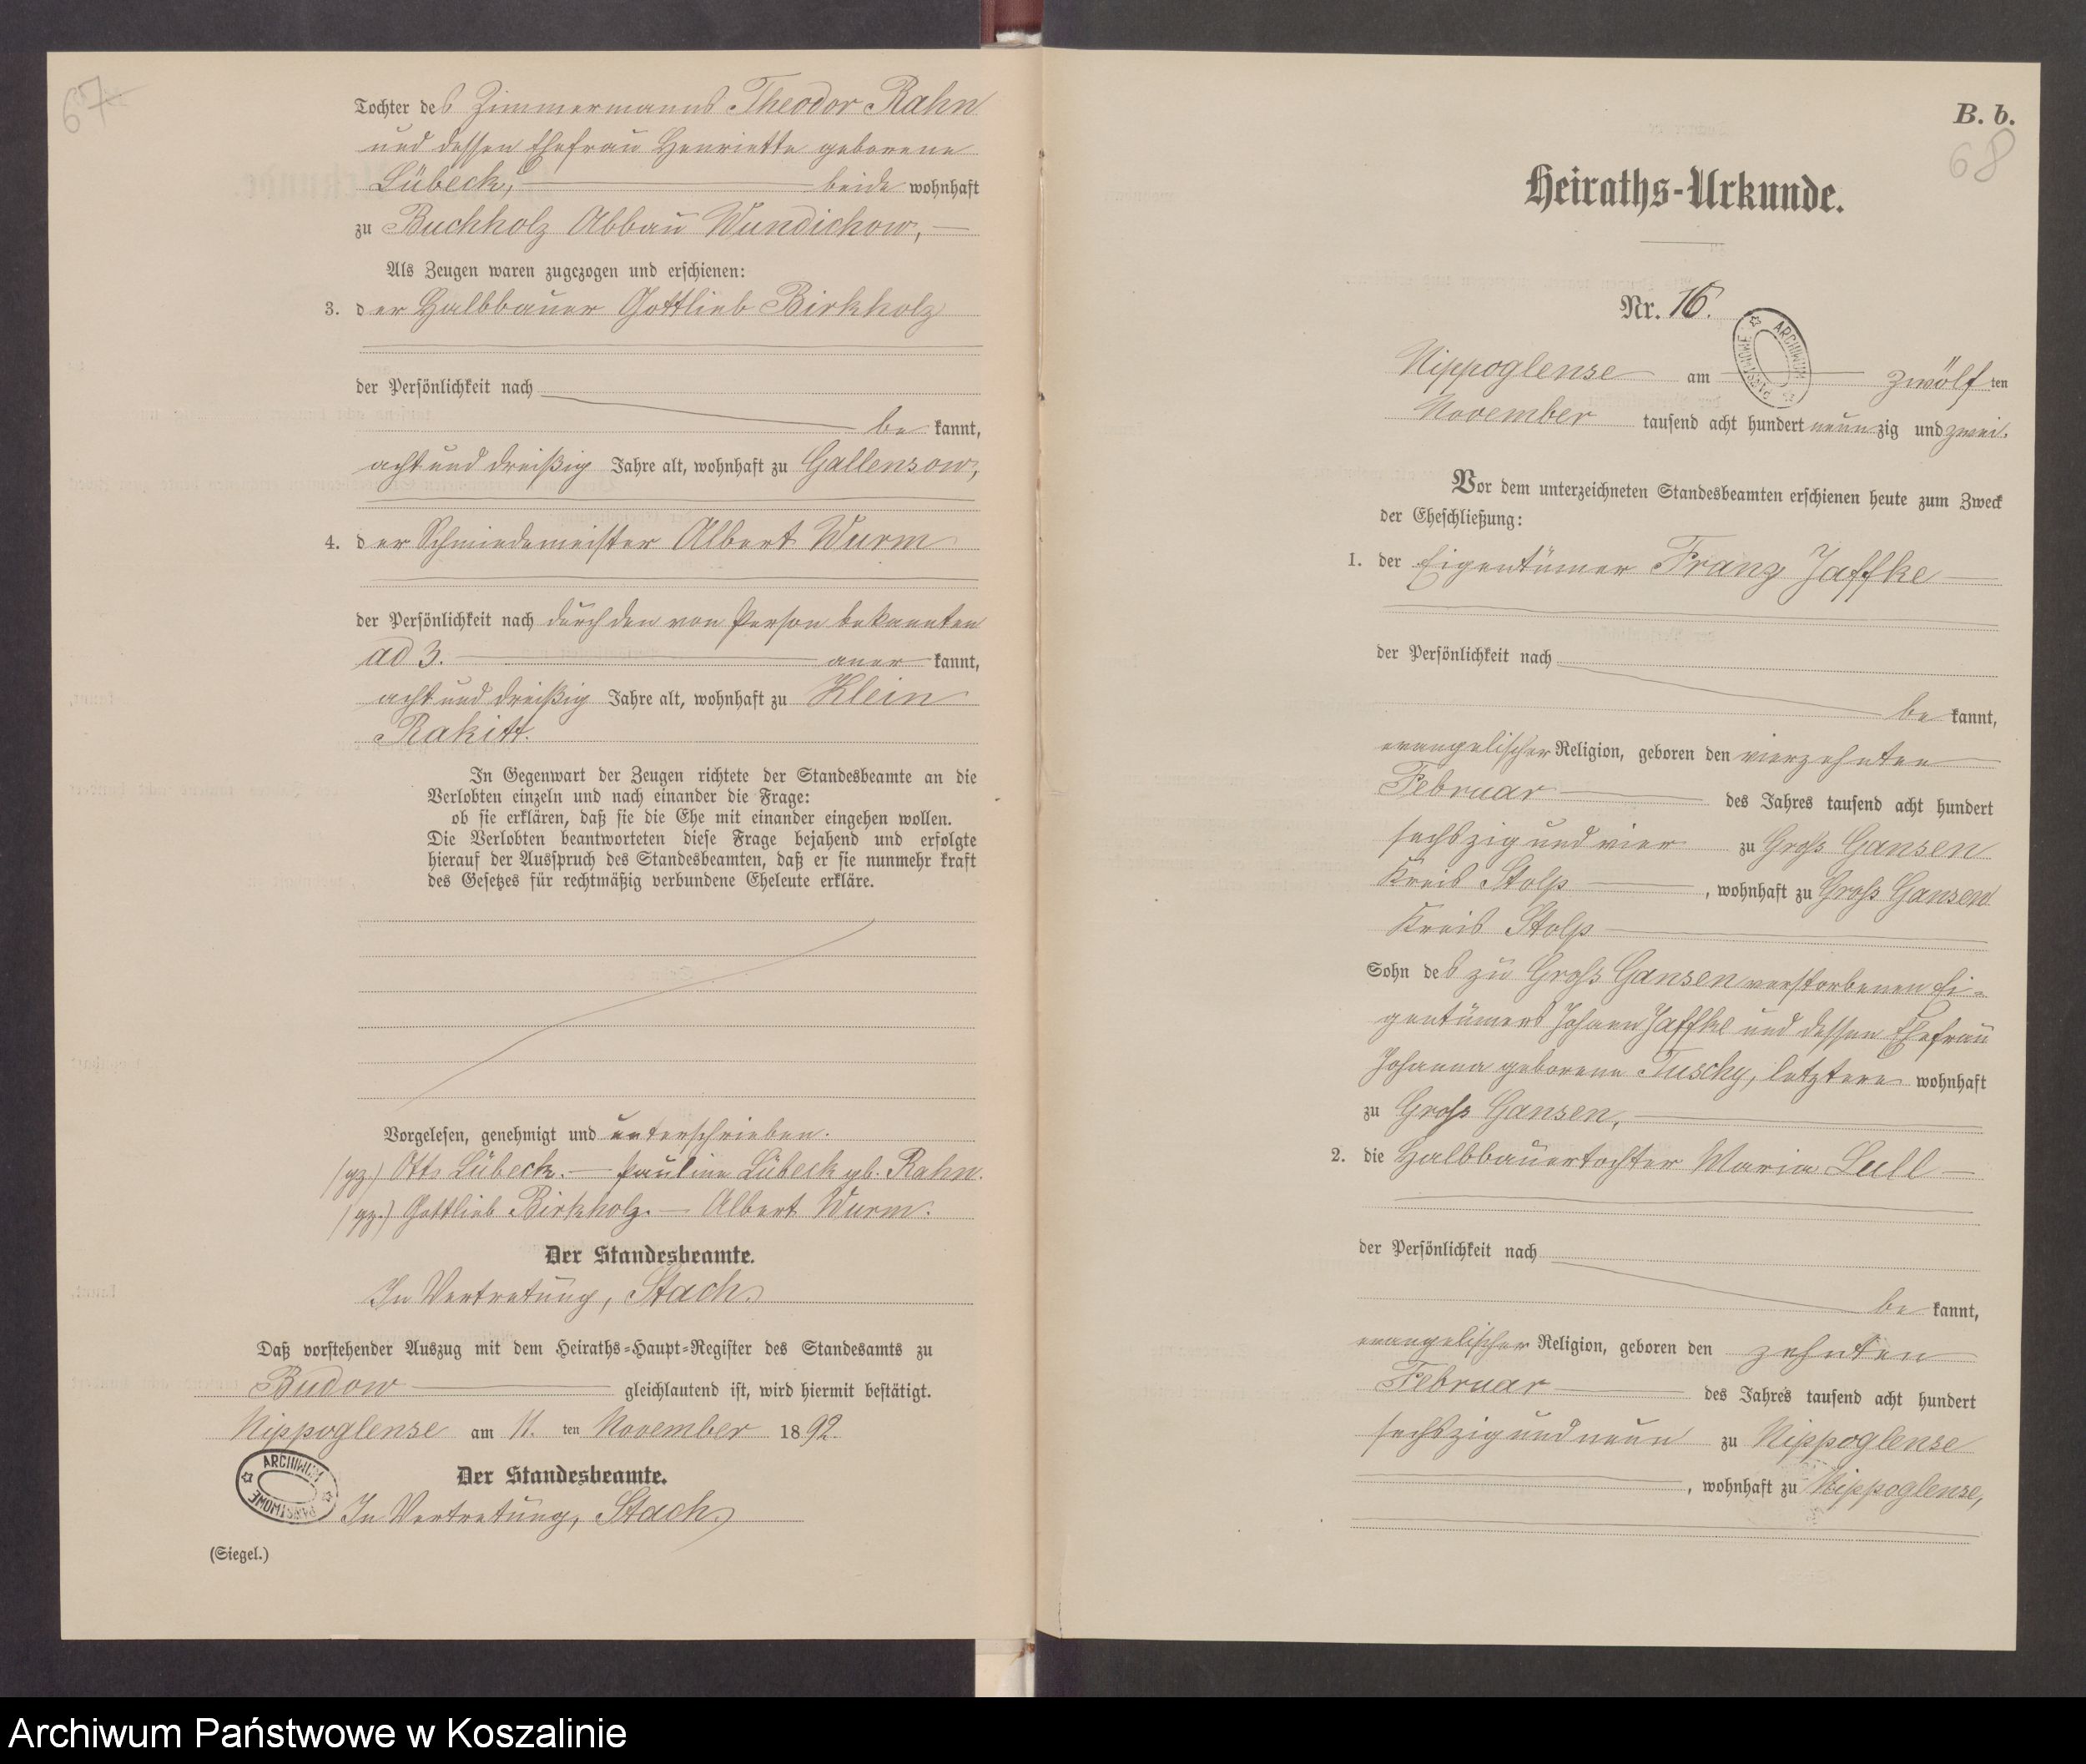 67
Tochter des Zimmermanns Theodor Rahn
und dessen Ehefrau Henriette geborene
Lübeck, beide wohnhaft
zu Buchholz Abbau Wundichow,
Als Zeugen waren zugezogen und erschienen:
3. der Halbbauer Gottlieb Birkholz
der Persönlichkeit nach
be kannt,
acht und dreißig Jahre alt, wohnhaft zu Gallensow,
4. der Schmiedemeister Albert Wurm
der Persönlichkeit nach durch den von Person bekannten
ad 3. aner kannt,
acht und dreißig Jahre alt, wohnhaft zu Klein
Rakitt.
In Gegenwart der Zeugen richtete der Standesbeamte an die
Verlobten einzeln und nach einander die Frage:
ob sie erklären, daß sie die Ehe mit einander eingehen wollen.
Die Verlobten beantworteten diese Frage bejahend und erfolgte
hierauf der Ausspruch des Standesbeamten, daß er sie nunmehr kraft
des Gesetzes für rechtmäßig verbundene Eheleute erkläre.
Vorgelesen, genehmigt und unterschrieben.
(gz.) Otto Lübeck. — Pauline Lübeck gb. Rahn.
(gz.) Gottlieb Birkholz. — Albert Wurm.
Der Standesbeamte.
In Vertretung, Stach
Daß vorstehender Auszug mit dem Heiraths-Haupt-Register des Standesamts zu
Budow gleichlautend ist, wird hiermit bestätigt.
Nippoglense am 11. ten November 1892.
Der Standesbeamte.
In Vertretung, Stach
ARCHIWUM PAŃSTWOWE
(Siegel.)
B. b.
68
Heiraths-Urkunde.
Nr. 16.
ARCHIWUM PAŃSTWOWE
Nippoglense am zwölf ten
November tausend acht hundert neunzig und zwei.
Vor dem unterzeichneten Standesbeamten erschienen heute zum Zweck
der Eheschließung:
1. der Eigentümer Franz Jaffke
der Persönlichkeit nach
be kannt,
evangelischer Religion, geboren den vierzehnten
Februar des Jahres tausend acht hundert
sechszig und vier zu Groß Gansen
Kreis Stolp, wohnhaft zu Groß Gansen
Kreis Stolp
Sohn des zu Groß Gansen verstorbenen Ei-
gentümers Johann Jaffke und dessen Ehefrau
Johanna geborene Tuschy, letztere wohnhaft
zu Groß Gansen,
2. die Halbbauertochter Maria Lull
der Persönlichkeit nach
be kannt,
evangelischer Religion, geboren den zehnten
Februar des Jahres tausend acht hundert
sechszig und neun zu Nippoglense
, wohnhaft zu Nippoglense,
Archiwum Państwowe w Koszalinie